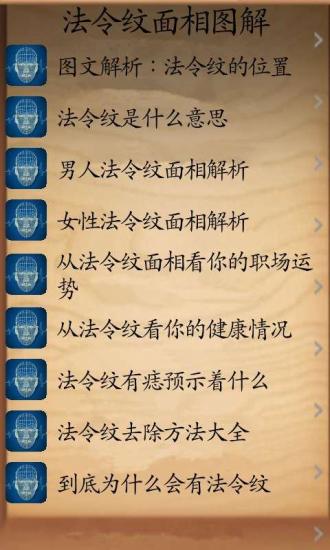 法令纹面相图解
图文解析：法令纹的位置
法令纹是什么意思
男人法令纹面相解析
女性法令纹面相解析
从法令纹面相看你的职场运
势
从法令纹看你的健康情况
法令纹有痣预示着什么
法令纹去除方法大全
到底为什么会有法令纹